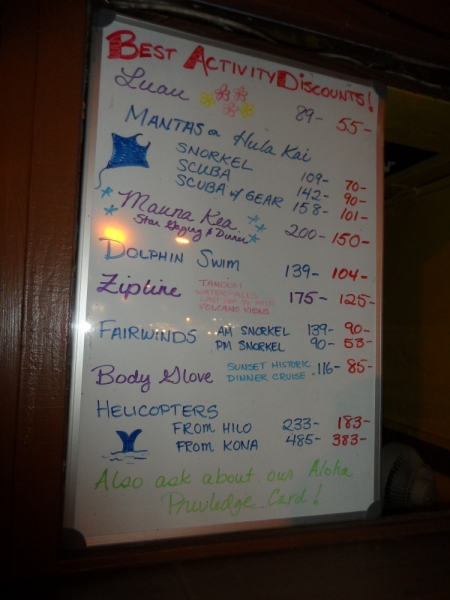 BEST ACTIVITY DISCOUNTS!
Luau 89- 55-
MANTAS on Hula Kai
SNORKEL 109- 70-
SCUBA 142- 90-
SCUBA w/ GEAR 158- 101-
Mauna Kea
Star Gazing & Dinner 200- 150-
DOLPHIN SWIM 139- 104-
Zipline TANDEM 175- 125-
WATERFALLS
VOLCANO VIEWS
FAIRWINDS AM SNORKEL 139- 90-
PM SNORKEL 90- 53-
Body Glove SUNSET HISTORIC
DINNER CRUISE 116- 85-
HELICOPTERS
FROM HILO 233- 183-
FROM KONA 485- 383-
Also ask about our Aloha
Privledge Card!